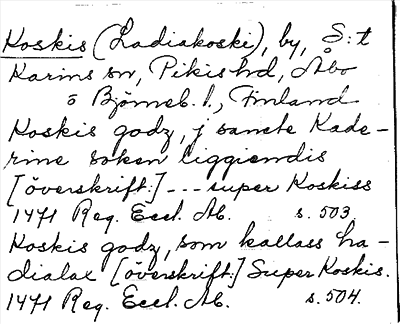 Koskis (Ladiakoski), by, S:t
Karins sn, Pikis hd, Åbo
o Björneb. l., Finland
Koskis godz, j sancte Kade-
rine soken liggiendis
[överskrift:] --- super Koskiss
1471 Reg. Eccl. Ab. s. 503
Koskis godz, som kallass ha-
dialax [överskrift:] Super Koskis.
1471 Reg. Eccl. Ab. s. 504.